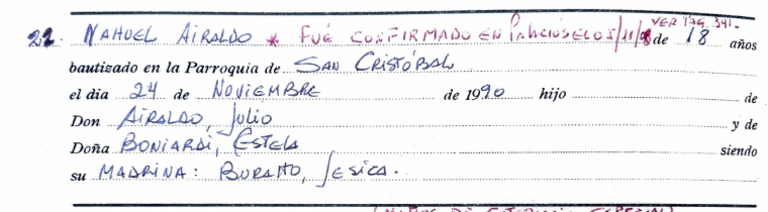 VER PAG. 341.
22. NAHUEL AIRALDO * FUÉ CONFIRMADO EN PALACIOS EL 01/11/08 de 18 años
bautizado en la Parroquia de SAN CRISTÓBAL
el dia 24 de NOVIEMBRE de 1990 hijo de
Don AIRALDO, Julio y de
Doña BONIARDI, ESTELA siendo
su MADRINA: BURATTO, JESICA.